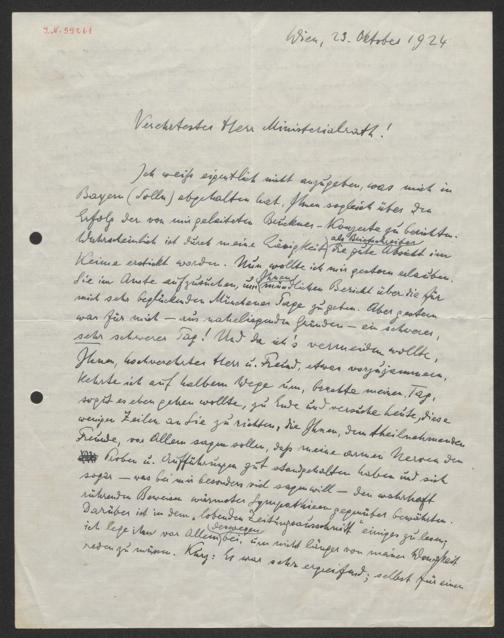 J.N. 99261
Wien, 23. Oktober 1924
Verehrtester Herr Ministerialrath!
Ich weiß eigentlich nicht anzugeben, was mich in
Bayern (Solln) abgehalten hat, Ihnen sogleich über den
Erfolg der von mir geleiteten Bruckner-Konzerte zu berichten.
als Briefschreiber
Wahrscheinlich ist durch meine Lässigkeit die gute Absicht im
Keime erstickt worden. Nun wollte ich mir gestern erlauben,
Ihnen
Sie im Amte aufzusuchen, um mündlichen Bericht über die für
mich sehr beglückenden Münchener Tage zu geben. Aber gestern
war für mich — aus naheliegenden Gründen — ein schwerer,
sehr schwerer Tag! Und da ich's vermeiden wollte,
Ihnen, hochverehrter Herr u. Freund, etwas vorzujammern,
kehrte ich auf halbem Wege um, brachte meinen Tag,
so gut es eben gehen wollte, zu Ende und versuche heute, diese
wenigen Zeilen an Sie zu richten, die Ihnen, dem theilnehmenden
Freunde, vor Allem sagen sollen, daß meine armen Nerven den
Proben u. Aufführungen gut standgehalten haben und sich
sogar — was bei mir besonders viel sagen will — den wahrhaft
rührenden Beweisen wärmster Sympathieen gegenüber bewährten.
Darüber ist in dem „lobenden Zeitungsausschnitt" einiges zu lesen;
deswegen
ich lege ihn vor Allem bei, um nicht länger von meiner Wenigkeit
reden zu müssen. Kurz: Es war sehr ergreifend; selbst für einen